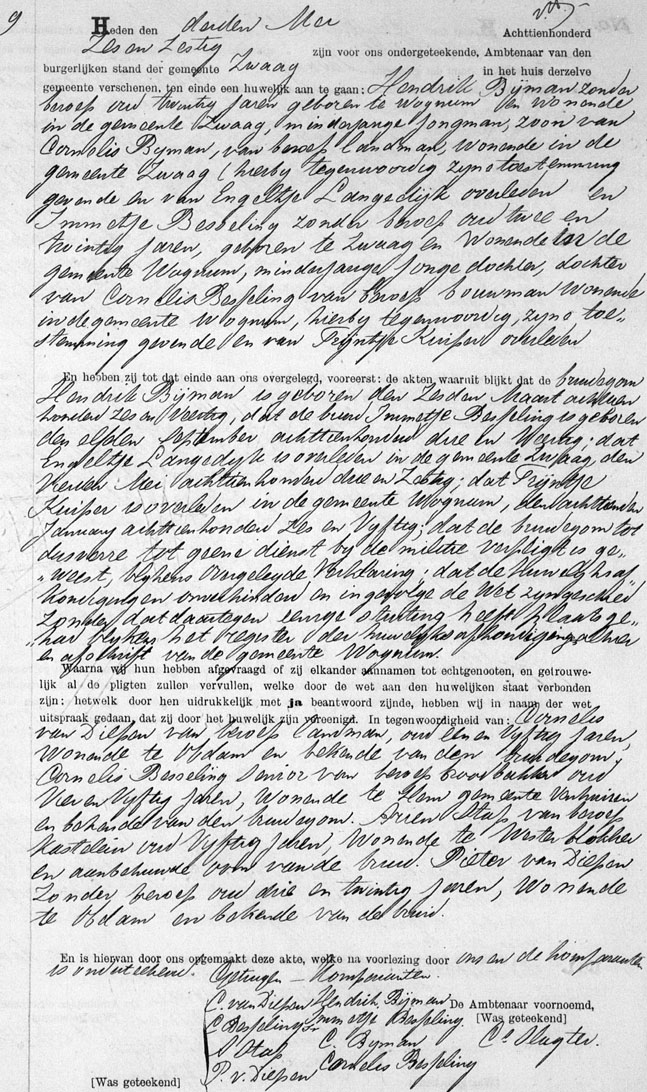 9
Heden den derden Mei Achttienhonderd
Zes en Zestig zijn voor ons ondergeteekende, Ambtenaar van den
burgerlijken stand der gemeente Zwaag in het huis derzelve
gemeente verschenen, ten einde een huwelijk aan te gaan: Hendrik Bijman zonder
beroep oud twintig jaren geboren te Wognum en wonende
in de gemeente Zwaag, minderjarige jongman, zoon van
Cornelis Bijman, van beroep landman, wonende in de
gemeente Zwaag (hierby tegenwoordig zyne toestemming
gevende en van Engeltje Langedijk overleden en
Immetje Besseling zonder beroep oud twee en
twintig jaren, geboren te Zwaag en Wonende in de
gemeente Wognum, minderjarige jonge dochter, dochter
van Cornelis Besseling van beroep bouwman Wonende
in de gemeente Wognum, hierby tegenwoordig, zyne toe„
stemming gevende en van Trijntje Kuiper overleden
En hebben zij tot dat einde aan ons overgelegd, vooreerst: de akten waaruit blijkt dat de bruidegom
Hendrik Bijman is geboren den Zesden Maart achttien
honderd Zes en Veertig, dat de bruid Immetje Besseling is geboren
den elfden September achttienhonderd drie en Veertig; dat
Engeltje Langedyk is overleden in de gemeente Zwaag, den
Vierden Mei achttienhonderd drie en Zestig; dat Trijntje
Kuiper is overleden in de gemeente Wognum, den achttienden
January achttienhonderd Zes en Vyftig; dat de bruidegom tot
dusverre tot geene dienst by de militie verpligt is ge„
„weest, blykens overgelegde Verklaring; dat de Huwelyksaf„
kondigingen onverhinderd en ingevolge de Wet zyn geschied
Zonder dat daartegen eenige stuiting heeft plaats ge„
had blykens het register der huwelyksafkondigingen alhier
en afschrift van de gemeente Wognum.
Waarna wij hun hebben afgevraagd of zij elkander aannamen tot echtgenooten, en getrouwe-
lijk al de pligten zullen vervullen, welke door de wet aan den huwelijken staat verbonden
zijn: hetwelk door hen uidrukkelijk met ja beantwoord zijnde, hebben wij in naam der wet
uitspraak gedaan, dat zij door het huwelijk zijn vereenigd. In tegenwoordigheid van: Cornelis
van Diepen van beroep landman, oud een en Vyftig jaren,
Wonende te Obdam en bekende van den bruidegom;
Cornelis Besseling Senior van beroep broodbakker oud
Vier en Vyftig jaren, Wonende te Hem gemeente Venhuizen
en bekende van den bruidegom. Arien Stap van beroep
kastelein oud Vyftig jaren, Wonende te Westerblokker
en aanbehuwde oom van de bruid. Pieter van Diepen
Zonder beroep oud drie en twintig jaren, Wonende
te Obdam en bekende van de bruid.
En is hiervan door ons opgemaakt deze akte, welke na voorlezing door ons en de komparanten
is onderteekend. Getuigen — Komparanten.
C. van Diepen Hendrik Bijman De Ambtenaar voornoemd,
C Besseling Sr Immetje Besseling. [Was geteekend]
A Stap C. Bijman
P. v. Diepen Cornelis Besseling
[Was geteekend]